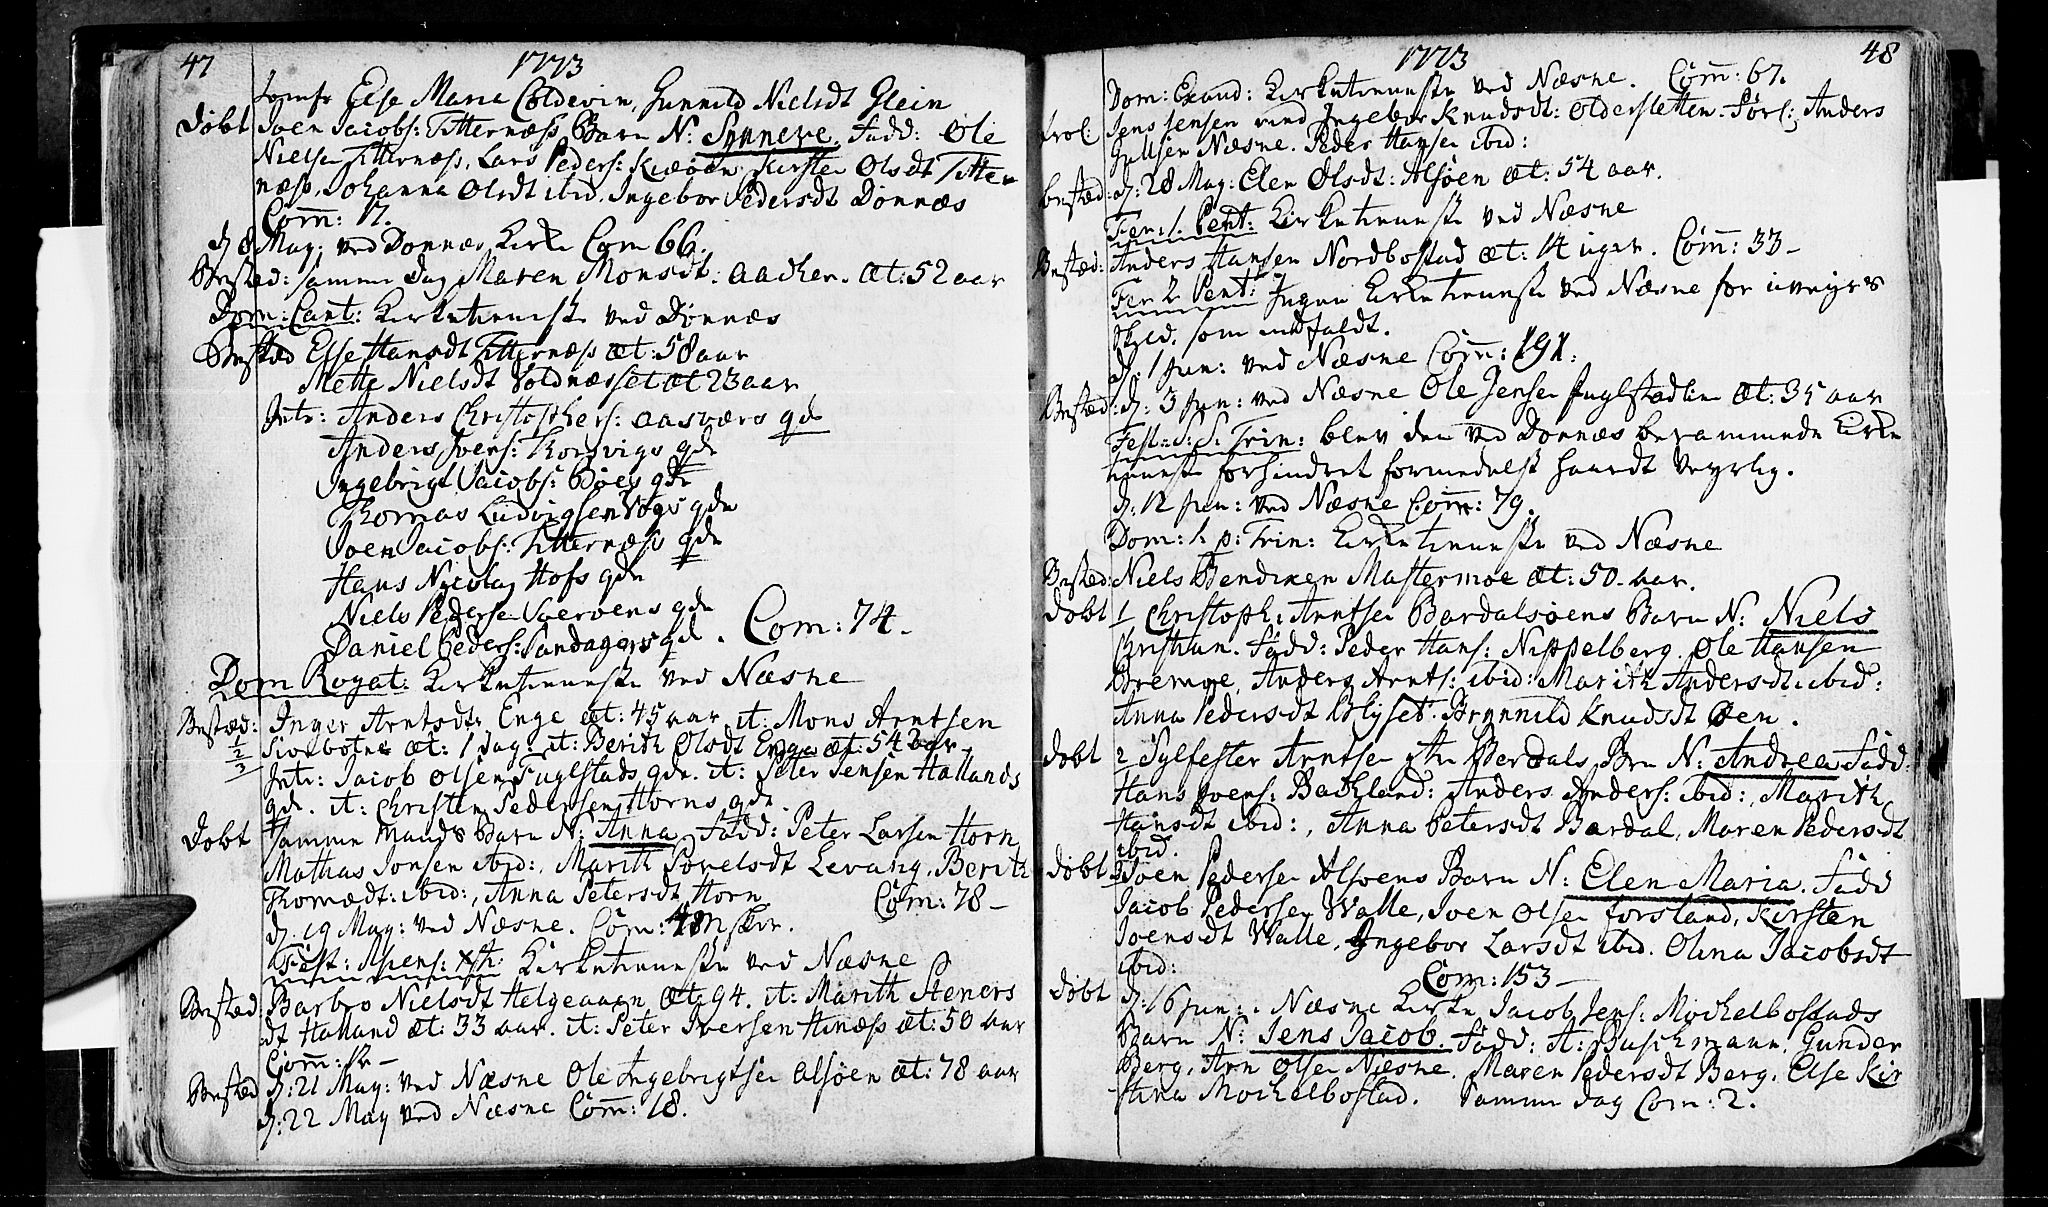 47
1773
Jomfr Else Maria Coldevin, Gunnild Nielsdt Glein
Døbt Joen Jacobs: Titternæss Barn N: Synneve. Fadd: Ole
Nielsen Titternæss, Lars Peders: Kiæøen, Kirsten Olsdt Titter
næss, Johanna Olsdt ibid. Ingebor Pedersdt Dønnæs
Com̅: 17.
d. 8 May: ved Dønnæs Kirke Com 66.
Bested: samme dag Maren Monsdt: Aacher. æt: 52 aar
Dom: Cant: Kirketienneste ved Dønnæs
Bested Else Hansdt Titternæss æt: 58 aar
Mette Nielsdt Voldnæsset æt 23 aar
Intr: Anders Christophers: Aasværs qde
Anders Ivers: Thorsvigs qde
Ingebrigt Jacobs: Bøes qde
Thomas Ludvigsen Vogs qde
Joen Jacobs: Titternæss qde
Hans Nicolay Hofs qde
Niels Pedersen qde
Daniel Peders: Sandagers qd. Com: 74.
Dom Rogat: Kirketienneste ved Næsne
Bestæd: Inger Arntsdtr Enge æt: 45 aar it: Mons Arntsen
1/2/3 æt: 1 dag: it: Berith Olsdt Enge æt: 54 aar
Intr: Jacob Olsen Fuglstads qde. it: Peter Jensen Hallands
qde. it: Christen Pedersen Horns qde.
Døbt samme Mands Barn N: Anna. Fadd: Peter Larsen Horn,
Mathas Jonsen ibid:, Marith Povelsdt Levang, Berith
Thomædt: ibid:, Anna Petersdt Horn. Com: 78 -
d. 19 May: ved Næsne. Com̅: 48
Fest: Ascens: Xsti: Kirketienneste ved Næsne
Bested: Barbro Nielsdt Helgeaaen æt 94. it: Marith Steners
dt Halland æt: 33 aar. it: Peter Iversen Hænæss æt: 50 aar
Com̅:
Bested d: 21 May: ved Næsne Ole Ingebrigtsen Alsøen æt: 78 aar
d: 22 May ved Næsne Com̅: 18.
48
1773
Dom: Exaud: Kirketienneste ved Næsne. Com̅: 67.
Trol: Jens Jensen vid Ingebor Knudsdt: Oldersletten. Forl: Anders
Gullsen Næsne. Peder Hansen ibid:
bested: d: 28 May: Elen Olsdt: Alsøen æt: 54 aar.
Fer: 1. Pent: Kirketienneste ved Næsne
Bested: Anders Hansen Nordbostad æt: 14 uger. Com̅: 33 -
Fer 2 Pent: Ingen Kirketienneste ved Næsne for uveyrs
skyld, som indfaldt.
d. 1 Jun: ved Næsne Com̅: 191.
Bested: d: 3 Jun: ved Næsne Ole Jensen Fuglstadlien æt: 35 aar
Fest: S: S: Trin: blev den ved Dønnæs berammede Kirke
tienneste forhindret formedelst haardt veyrlig.
d: 12 Jun: ved Næsne Com̅: 79.
Dom: 1. p: Trin: Kirketienneste ved Næsne
Bested: Niels Bendixen Mastermoe æt: 50 aar.
Døbt 1 Christoph: Arntsen Bardalsøens Barn N: Niels
Christian. Fadd: Peder Hans: Nippelberg. Ole Hansen
Bremoe, Anders Arnts: ibid: Marith Andersdt: ibid:
Anna Pedersdt Flyset. Brynnild Knudsdt Øen.
Døbt 2 Sylfester Arntsen Bardals Brn N: Andrea Fadd:
Hans Ivers: Bachland: Anders Anders: ibid:, Marith
Hansdt ibid:, Anna Petersdt Bardal, Maren Pedersdt
ibid.
Døbt 3 Joen Pedersen Alsøens Barn N: Elen Maria. Fadd
Jacob Pedersen Walle, Joen Olsen Forsland, Kirsten
Joensdt Walle, Ingebor Larsdt ibid. Olina Jacobsdt
ibid:
Com: 153 -
Døbt d: 16 Jun: i Næsne Kirke Jacob Jens: Mochelbostads
Barn N: Jens Jacob. Fadd: A: Buschmann, Gunder
Berg, Arn Olsen Næsne. Maren Pedersdt Berg, Else Kir
stina Mochelbostad. Samme dag Com: 2.